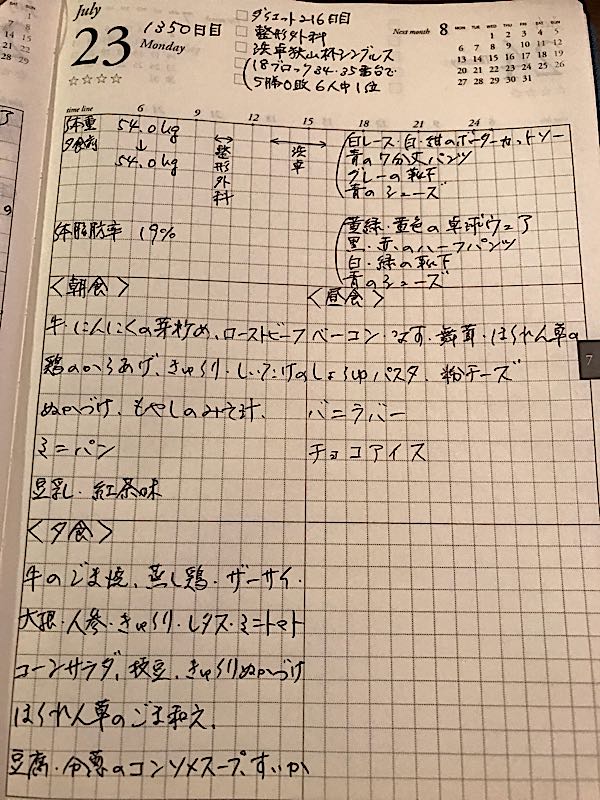 July
23
Monday
1350日目
ダイエット216日目
整形外科
浜卓狭山杯シングルス
18ブロック34・35番台で
5勝0敗 6人中1位
Next month 8
MON TUE WED THU FRI SAT SUN
1 2 3 4 5
6 7 8 9 10 11 12
13 14 15 16 17 18 19
20 21 22 23 24 25 26
27 28 29 30 31
time line 6 9 12 15 18 21 24
体重 54.0kg
夕食前 ↓
54.0kg
整形外科
浜卓
白レース・白・紺のボーダーカットソー
青の7分丈パンツ
グレーの靴下
青のシューズ
体脂肪率 19%
黄緑・黄色の卓球ウェア
黒・赤のハーフパンツ
白・緑の靴下
青のシューズ
<朝食>
牛・にんにくの芽炒め、ローストビーフ
鶏のからあげ、きゅうり・
ぬかづけ、もやしのみそ汁、
ミニパン
豆乳・紅茶味
<昼食>
ベーコン・なす・舞茸・ほうれん草の
しいたけのしょうゆパスタ、粉チーズ
バニラバー
チョコアイス
7
<夕食>
牛のごま焼、蒸し鶏・ザーサイ・
大根・人参・きゅうり・レタス・ミニトマト
コーンサラダ、枝豆、きゅうりぬかづけ
ほうれん草のごま和え、
豆腐・のコンソメスープ、すいか